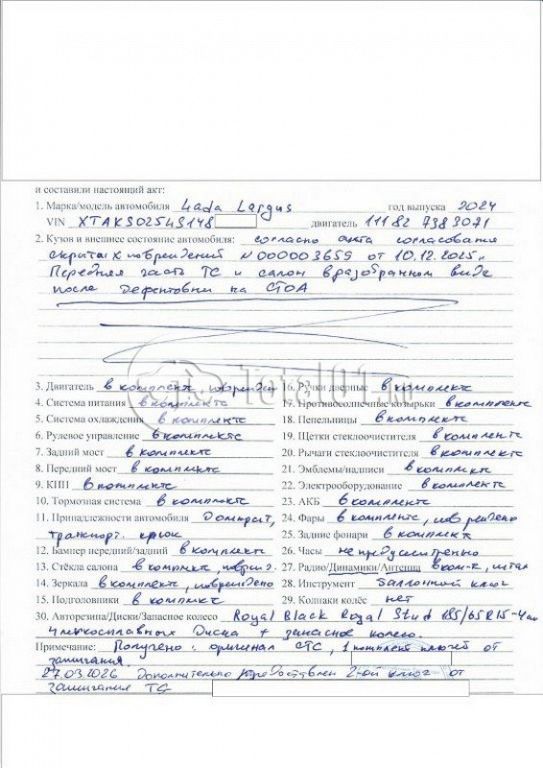 и составили настоящий акт:
1. Марка/модель автомобиля Lada Largus год выпуска 2024
VIN XTAKS0254S1148 двигатель 11182 7383071
2. Кузов и внешнее состояние автомобиля: согласно акта согласования
скрытых повреждений N000003659 от 10.12.2025г.
Передняя часть ТС и салон в разобранном виде
после дефектовки на СТОА
Total01.ru
3. Двигатель в комплекте, поврежден 16. Ручки дверные в комплекте
4. Система питания в комплекте 17. Противосолнечные козырьки в комплекте
5. Система охлаждения в комплекте 18. Пепельницы в комплекте
6. Рулевое управление в комплекте 19. Щетки стеклоочистителя в комплекте
7. Задний мост в комплекте 20. Рычаги стеклоочистителя в комплекте
8. Передний мост в комплекте 21. Эмблемы/надписи в комплекте
9. КПП в комплекте 22. Электрооборудование в комплекте
10. Тормозная система в комплекте 23. АКБ в комплекте
11. Принадлежности автомобиля Домкрат, 24. Фары в комплекте, повреждено
транспорт. крюк 25. Задние фонари в комплекте
12. Бампер передний/задний в комплекте 26. Часы не предусмотрено
13. Стёкла салона в комплекте, поврежд. 27. Радио/Динамики/Антенна в ком-к, штат
14. Зеркала в комплекте, повреждено 28. Инструмент баллонный ключ
15. Подголовники в комплекте 29. Колпаки колёс нет
30. Авторезина/Диски/Запасное колесо Royal Black Royal Stud 185/65R15-4шт
4 легкосплавных диска + запасное колесо.
Примечание: Получено: оригинал СТС, 1 комплект ключей от
зажигания.
27.03.2026 Дополнительно предоставлен 2-ой ключ от
зажигания ТС